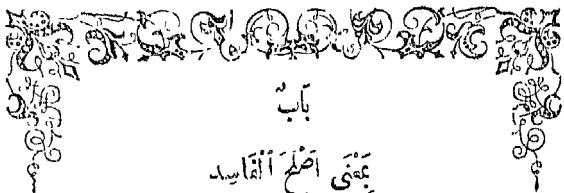 بَابٌ
بِمَعْنَى أَصْلَحَ ٱلْفَاسِد